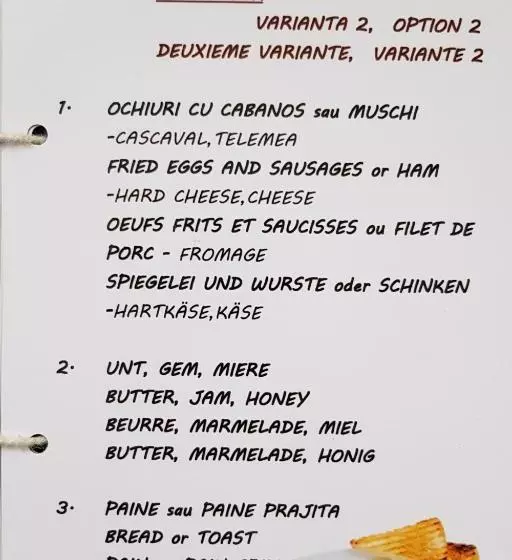 VARIANTA 2, OPTION 2
DEUXIEME VARIANTE, VARIANTE 2
1. OCHIURI CU CABANOS sau MUSCHI
-CASCAVAL, TELEMEA
FRIED EGGS AND SAUSAGES or HAM
-HARD CHEESE, CHEESE
OEUFS FRITS ET SAUCISSES ou FILET DE
PORC - FROMAGE
SPIEGELEI UND WURSTE oder SCHINKEN
-HARTKÄSE, KÄSE
2. UNT, GEM, MIERE
BUTTER, JAM, HONEY
BEURRE, MARMELADE, MIEL
BUTTER, MARMELADE, HONIG
3. PAINE sau PAINE PRAJITA
BREAD or TOAST